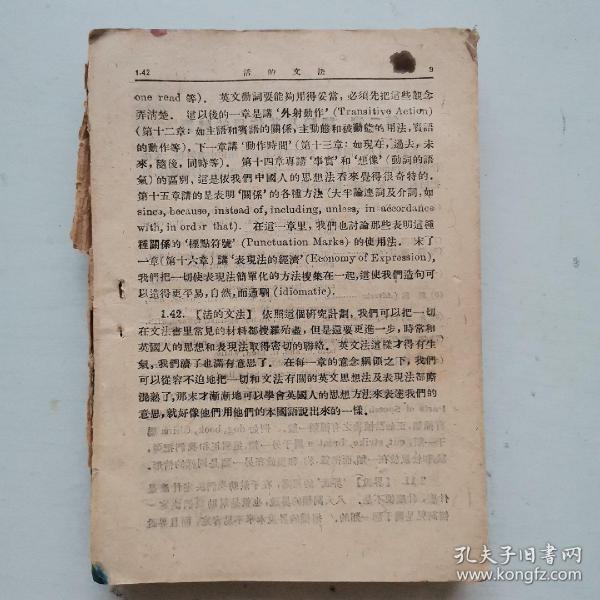 1.42 活的文法 9
one read 等)． 英文動詞要能夠用得妥當，必須先把這些觀念
弄清楚． 這以後的一章是講‘外射動作’(Transitive Action)
(第十二章：如主語和賓語的關係，主動態和被動態的用法，賓語
的動作等)，下一章講‘動作時間’(第十三章：如現在，過去，未
來，隨後，同時等)． 第十四章專講‘事實’和‘想像’(動詞的語
氣)的區別，這是依我們中國人的思想法看來覺得很奇特的．
第十五章講的是表明‘關係’的各種方法(大半論連詞及介詞，如
since, because, instead of, including, unless, in accordance
with, in order that)． 在這一章里，我們也討論那些表明這種
種關係的‘標點符號’(Punctuation Marks)的使用法． 末了
一章(第十六章)講‘表現法的經濟’(Economy of Expression)，
我們把一切使表現法簡單化的方法搜集在一起，這使我們造句可
以造得更平易，自然，而通順(idiomatic)．
1.42. 【活的文法】 依照這個研究計劃，我們可以把一切
在文法書里常見的材料都搜羅殆盡，但是還要更進一步，時常和
英國人的思想和表現法取得密切的聯絡． 英文法這樣才得有生
氣，我們讀了也滿有意思了． 在每一章的意念綱領之下，我們
可以從容不迫地把一切和文法有關的英文思想法及表現法都弄
混熟了，那末才漸漸地可以學會英國人的思想方法來表達我們的
意思，就好像他們用他們的本國語說出來的一樣．
孔夫子旧书网
www.kongfz.com